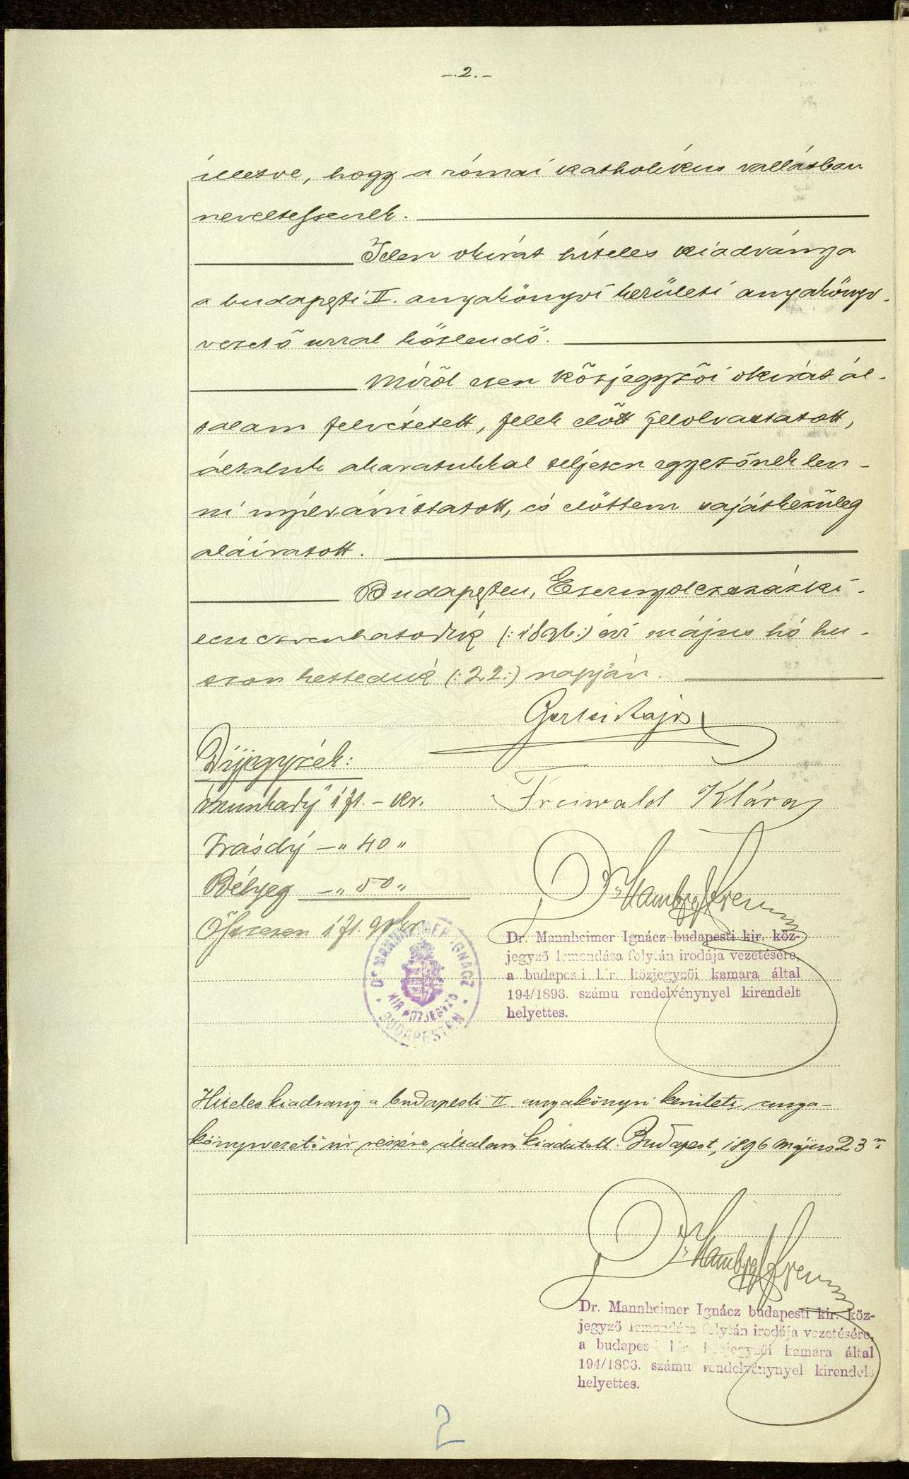 -2.-
illetve, hogy a római katholikus vallásban
neveltessenek.
Jelen okirat hiteles kiadványa
a budapesti II. anyakönyvi kerületi anyakönyv-
vezető urral közlendő.
Miről ezen közjegyzői okirat ál-
talam felvétetett, felek előtt felolvastatott,
általuk akaratukkal teljesen egyezőnek len-
ni nyilvánittatott, és előttem sajátkezüleg
aláiratott.
Budapesten, Ezernyolczszázki-
lenczvenhatodik (:1896:) évi május hó hu-
szonkettedik (:22:) napján.
Lajos
Díjjegyzék:
Freiwald Klára
Munkadíj 1 ft. - kr.
Irásdíj -„ 40 „
Bélyeg -„ 50 „
Összesen 1 ft. 90 kr.
Dr
Dr. MANNHEIMER IGNÁCZ
KIR. KÖZJEGYZŐ
BUDAPESTEN
Dr. Mannheimer Ignácz budapesti kir. köz-
jegyző lemondása folytán irodája vezetésére,
a budapesti kir. közjegyzői kamara által
194/1893. számu rendelvénynyel kirendelt
helyettes.
Hiteles kiadvány a budapesti II. anyakönyvi kerületi anya-
könyvvezető úr részére általam kiadatott. Budapest, 1896 május 23
Dr
Dr. Mannheimer Ignácz budapesti kir. köz-
jegyző lemondása folytán irodája vezetésére,
a budapesti kir. közjegyzői kamara által
194/1893. számu rendelvénynyel kirendelt
helyettes.
2